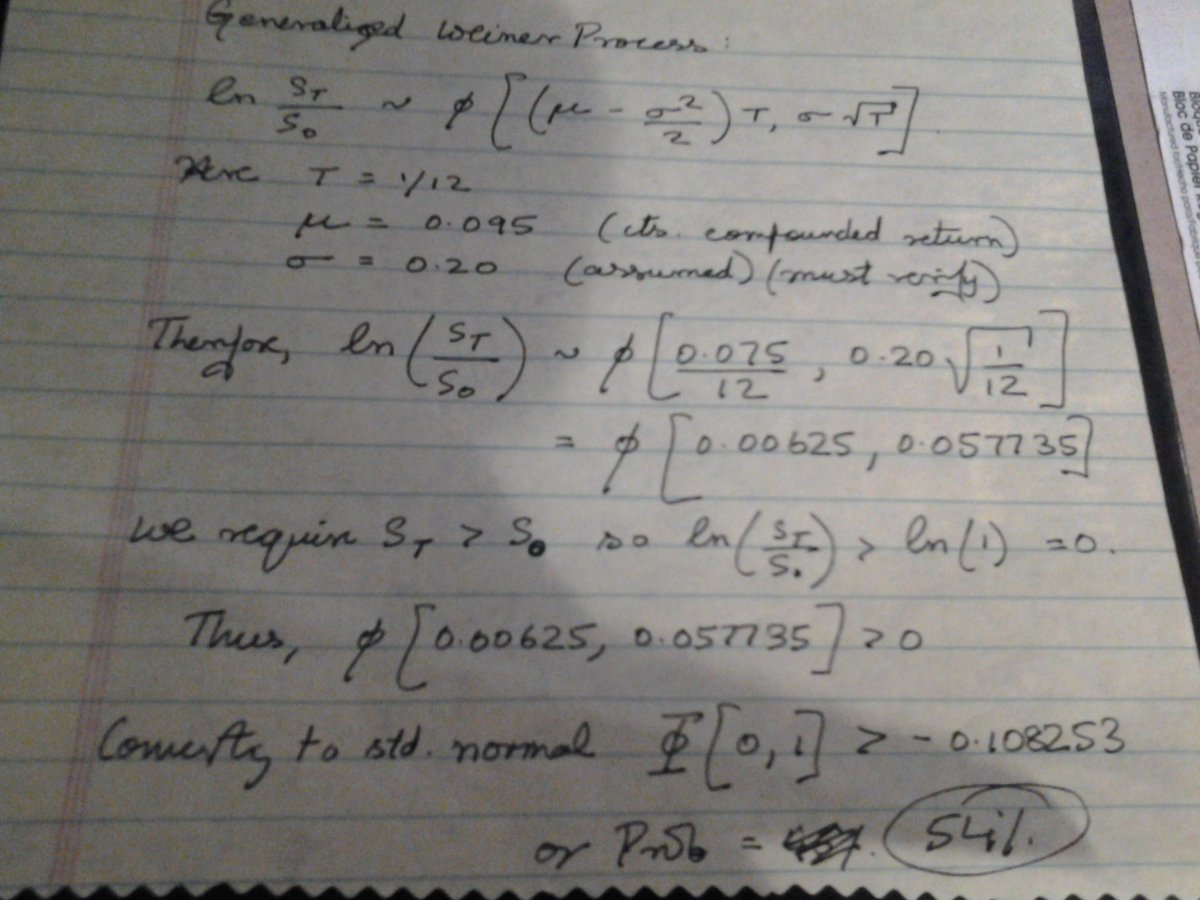 Generalized Weiner Process:
ln S_T/S_0 ~ φ[(μ - σ²/2)T, σ√T]
Here T = 1/12
μ = 0.095 (cts. compounded return)
σ = 0.20 (assumed) (must verify)
Therefore, ln(S_T/S_0) ~ φ[0.075/12, 0.20√(1/12)]
= φ[0.00625, 0.057735]
We require S_T > S_0 so ln(S_T/S_0) > ln(1) = 0.
Thus, φ[0.00625, 0.057735] > 0
Converting to std. normal Φ[0,1] > -0.108253
or Prob = 54%.
Bloc de Papier